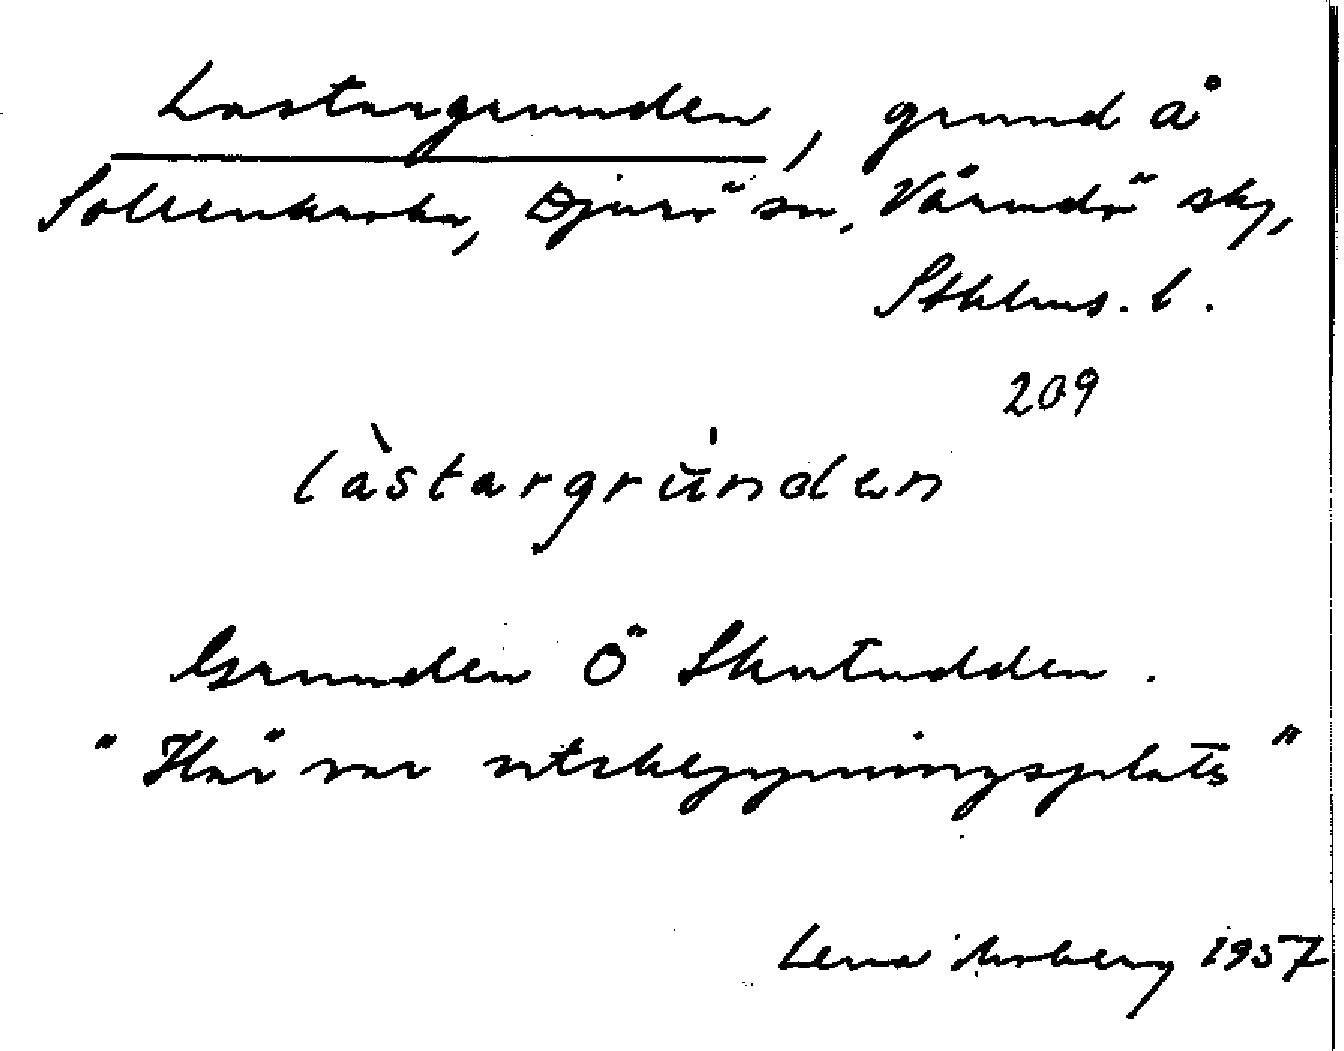 Lastargrunden, grund å
Sollenkroka, Djurö sn, Värmdö skg,
Sthlms. l.
209
làstargrùnden
Grunden Ö Skutudden.
"Här var utskeppningsplats"
Lena Moberg 1957